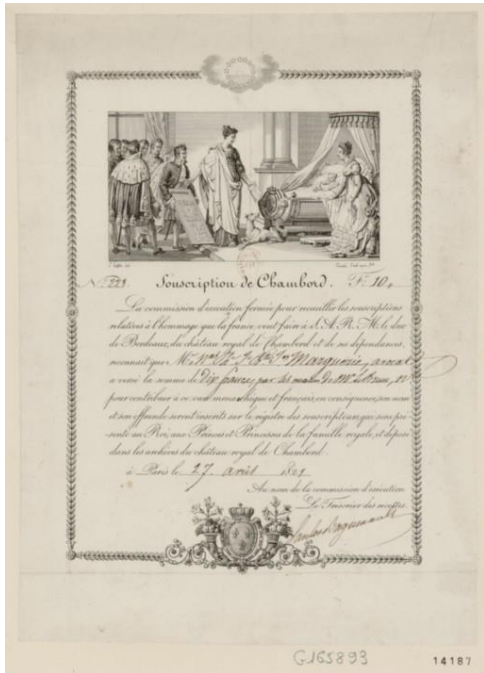 Nº 223. Souscription de Chambord. Fr. 10 „
La commission d'exécution formée pour recueillir les souscriptions
relatives à l'hommage que la france veut faire à S. A. R. M. le duc
de Bordeaux, du château royal de Chambord et de ses dépendances,
reconnait que Mr Marguerie, avocat
a versé la somme de Dix francs, par les mains de Mr
pour contribuer à ce vœu monarchique et français; en conséquence, son nom
et son offrande seront inscrits sur le registre des souscripteurs, qui sera pré-
senté au Roi, aux Princes et Princesses de la famille royale, et déposé
dans les archives du château royal de Chambord.
à Paris le 27 avril 1821
Au nom de la commission d'exécution
Le Trésorier des recettes.
G165893
14187